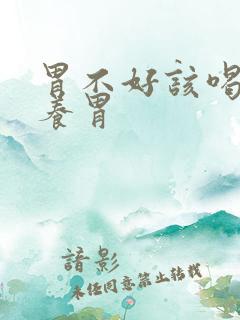 胃不好該喝
養胃
諳影
未任同意禁止转载